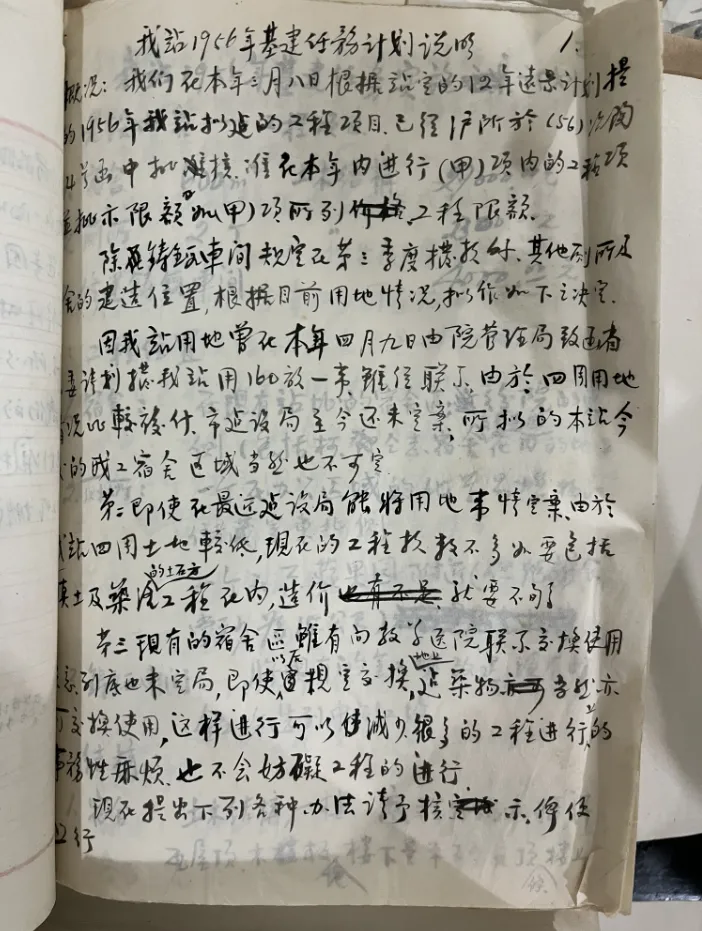 我站1956年基建任务计划说明 1.
概况：我们在本年三月八日根据站定的12年远景计划提
的1956年我站拟造的工程项目.已经沪所於(56)沪陶
4号函中批准在本年内进行(甲)项内的工程项
并批示限额如(甲)项所列工程限额.
除铸车间规定在第三季度拨款外.其他列所及
舍的建造位置,根据目前用地情况,拟作如下之决定.
因我站用地曾在本年四月九日由院管理局致函省
委请划拨我站用160放一事虽经联系.由於四周用地
情况比较复什.市建设局至今还未定案,所拟的本站今
的职工宿舍区域当然也不可定.
第二即使在最近建设局能将用地事情定案,由於
我站四周土地较低,现在的工程款数不多如要包括
填土及的土石方工程在内,造价就要不够了
第三现有的宿舍区虽有向教学医院联系交换使用
到底也未定局,即使以后规定交换,地上建筑物当然亦
可交换使用,这样进行可以减少很多的工程进行上的
事务性麻烦.也不会妨碍工程的进行.
现在提出下列各种办法请予核示,俾便
行